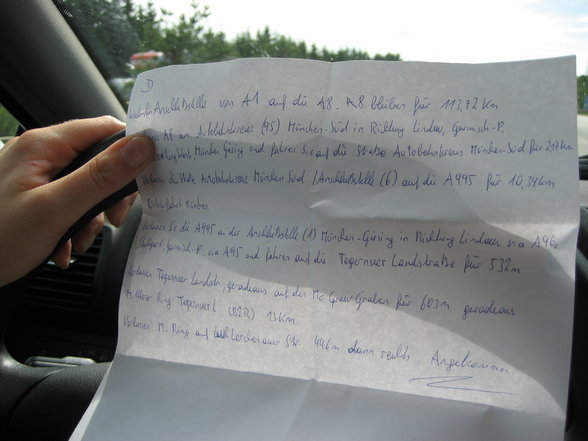 D
Anschlußstelle von A1 auf die A8. A8 bleiben für 113,72 km
A8 am Autobahnkreuz (95) München-Süd in Richtung Lindau, Garmisch-P.
München Giesing und fahren Sie auf die Straße Autobahnkreuz München-Süd für 217 km
Verlassen die Straße Autobahnkreuz München Süd / Anschlußstelle (6) auf die A995 für 10,34 km
München
Verlassen Sie die A995 an der Anschlußstelle (1) München-Giesing in Richtung Lindau via A96,
Stuttgart, Garmisch-P. via A95 und fahren auf die Tegernseer Landstraße für 532m
Verlassen Tegernseer Landstr., geradeaus auf den Mc Graw Graben für 603m geradeaus
M. Ring Tegernseerl. (B2R) 15 km
Verlassen M. Ring auf Str. 446m dann rechts Angekommen